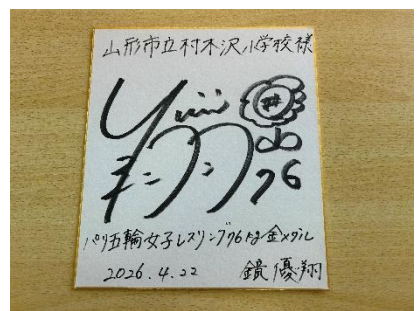 山形市立村木沢小学校様
Yui
76
パリ五輪女子レスリング76kg金メダル
2026.4.22 鏡優翔